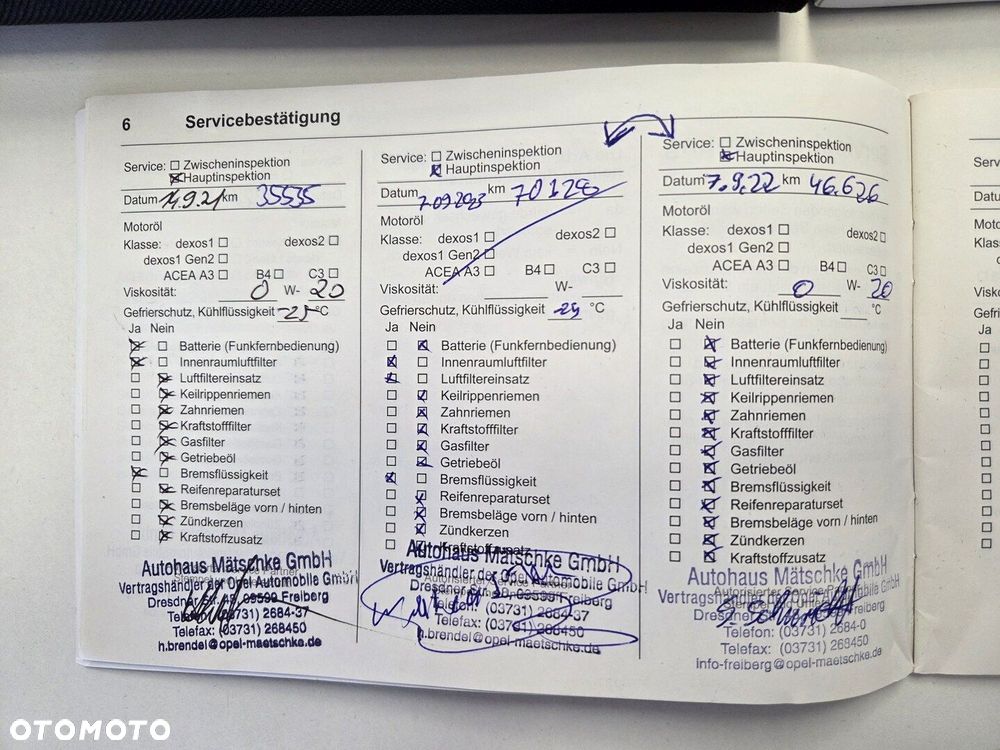 6 Servicebestätigung
Service: Zwischeninspektion
Hauptinspektion
Datum 1.9.21 km 35535
Motoröl
Klasse: dexos1 dexos2
dexos1 Gen2
ACEA A3 B4 C3
Viskosität: 0 W- 20
Gefrierschutz, Kühlflüssigkeit -25 °C
Ja Nein
Batterie (Funkfernbedienung)
Innenraumluftfilter
Luftfiltereinsatz
Keilrippenriemen
Zahnriemen
Kraftstofffilter
Gasfilter
Getriebeöl
Bremsflüssigkeit
Reifenreparaturset
Bremsbeläge vorn / hinten
Zündkerzen
Kraftstoffzusatz
Autohaus Mätschke GmbH
Vertragshändler der Opel Automobile GmbH
Dresdner 48, 09599 Freiberg
Telefon: (03731) 2684-37
Telefax: (03731) 268450
h.brendel@opel-maetschke.de
Service: Zwischeninspektion
Hauptinspektion
Datum 7.09.2023 km 70128
Motoröl
Klasse: dexos1 dexos2
dexos1 Gen2
ACEA A3 B4 C3
Viskosität: W-
Gefrierschutz, Kühlflüssigkeit -25 °C
Ja Nein
Batterie (Funkfernbedienung)
Innenraumluftfilter
Luftfiltereinsatz
Keilrippenriemen
Zahnriemen
Kraftstofffilter
Gasfilter
Getriebeöl
Bremsflüssigkeit
Reifenreparaturset
Bremsbeläge vorn / hinten
Zündkerzen
Kraftstoffzusatz
Autohaus Mätschke GmbH
Vertragshändler der Opel Automobile GmbH
Autorisierter Service Partner
Dresdner 09599 Freiberg
Telefon: (03731) 2684-37
Telefax: (03731) 268450
h.brendel@opel-maetschke.de
Service: Zwischeninspektion
Hauptinspektion
Datum 7.9.22 km 46.626
Motoröl
Klasse: dexos1 dexos2
dexos1 Gen2
ACEA A3 B4 C3
Viskosität: 0 W- 20
Gefrierschutz, Kühlflüssigkeit °C
Ja Nein
Batterie (Funkfernbedienung)
Innenraumluftfilter
Luftfiltereinsatz
Keilrippenriemen
Zahnriemen
Kraftstofffilter
Gasfilter
Getriebeöl
Bremsflüssigkeit
Reifenreparaturset
Bremsbeläge vorn / hinten
Zündkerzen
Kraftstoffzusatz
Autohaus Mätschke GmbH
Vertragshändler der Opel GmbH
Dresdner Freiberg
Telefon: (03731) 2684-0
Telefax: (03731) 268450
info-freiberg@opel-maetschke.de
OTOMOTO